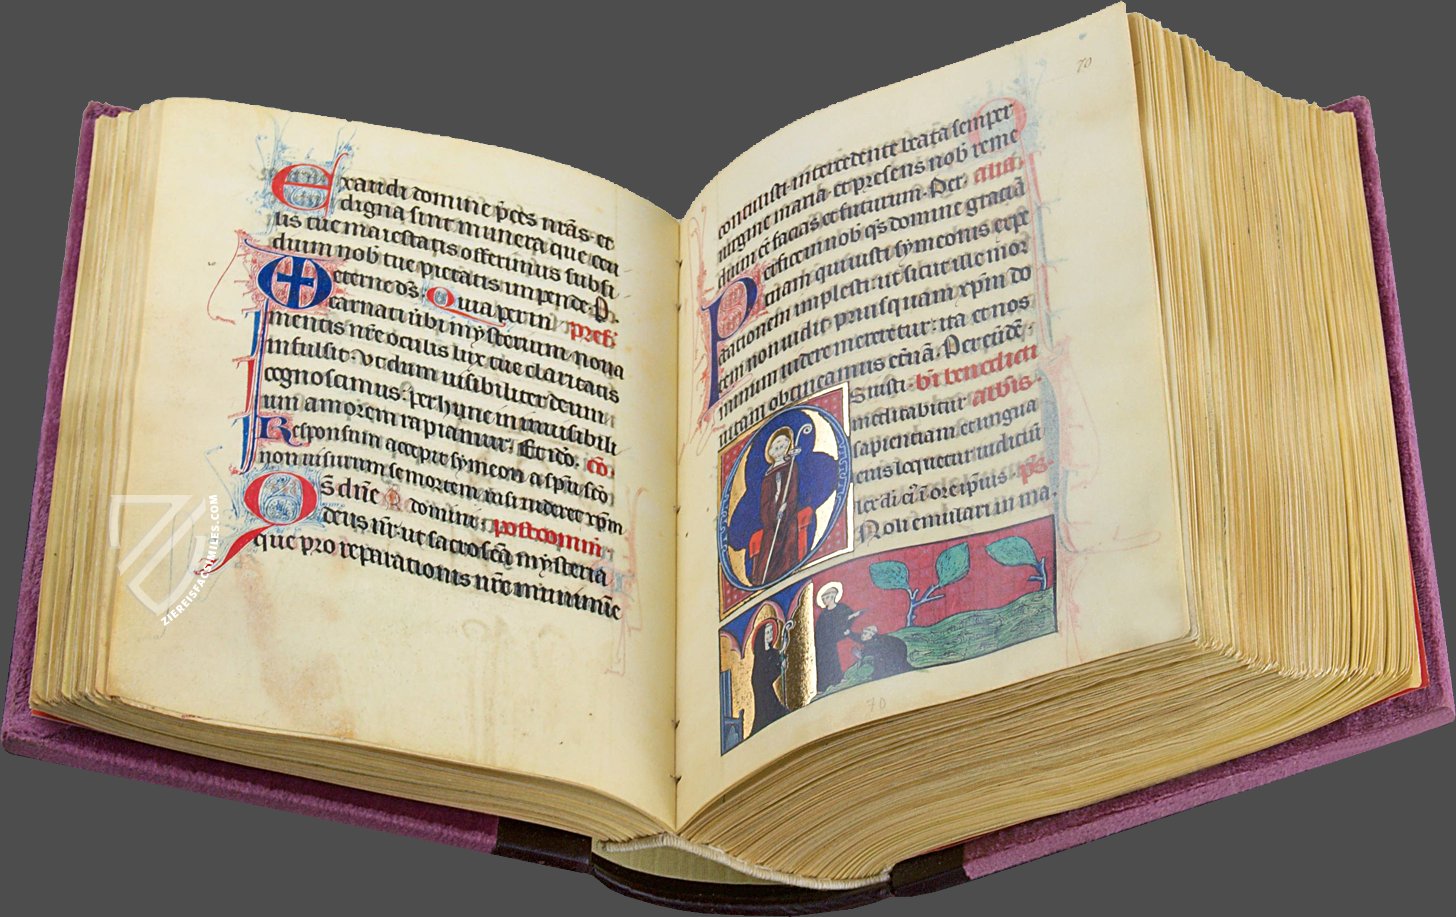 Exaudi domine p̄ces nr̄as· et
digna sint munera que ocu
lis tue maiestatis offerimus subsi
dium nob̄ tue pietatis impende· P.
eterne ds̄· Quia per in pref̄.
carnati ūbi mysterium· noua
mentis nr̄e oculis lux tue claritatis
infulsit· Vt dum uisibiliter deum
cognoscimus· per hunc inuisibili
um amorem rapiamur· Et iō. co.
Responsum accepit symeon a spū scō
non uisurum se mortem nisi uideret xp̄m
Qs̄ dn̄e domine postcomm̄
deus nr̄· ut sacrosc̄a mysteria
que pro reparationis nr̄e munimine
70
contulisti· intercedente beata semper
uirgine maria· et presens nob̄ reme
dium eē facias et futurum· Per alia.
Perfice in nob̄ qs̄ domine gratiā
tuam qui iusti symeonis exspe
ctationem implesti· ut sicut ille mor
tem non uidit priusquam xp̄m do
minum uidere mereretur· ita et nos
uitam obtineamus etn̄ā· Per eūdē·
OS iusti· bī benedicti
meditabitur abbis·
sapientiam et lingua
eius loquetur iudiciū
lex dī ei ī corde ipius· p̄s·
Noli emulari in ma.
70
ZIEREISFACSIMILES.COM